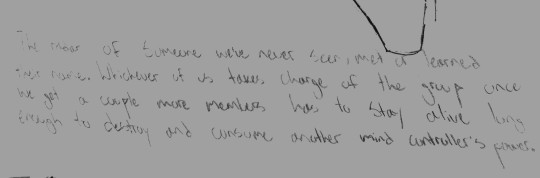 The of someone we've never seen, met or learned
their name. Whichever of us takes charge of the group once
we get a couple more members has to stay alive long
enough to destroy and consume another mind controller's power.